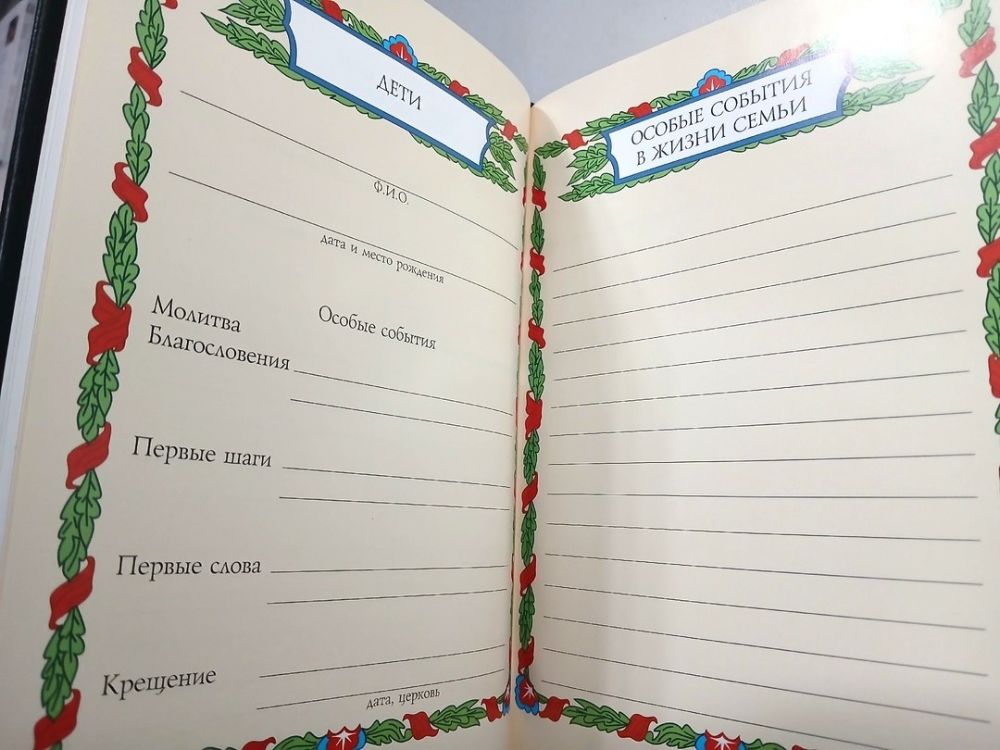 ДЕТИ
Ф.И.О.
дата и место рождения
Особые события
Молитва
Благословения
Первые шаги
Первые слова
Крещение
дата, церковь
ОСОБЫЕ СОБЫТИЯ
В ЖИЗНИ СЕМЬИ